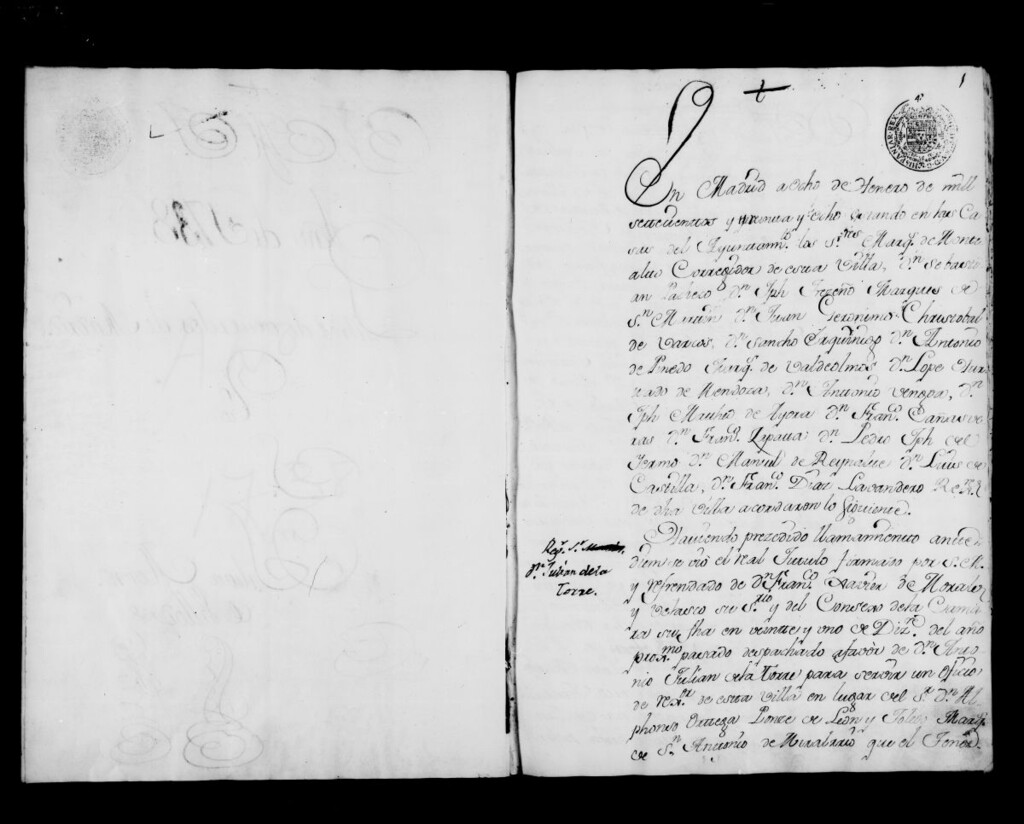 1
En Madrid a ocho de Henero de mill
settecientos y treinta y ocho estando en las Ca
sas del Ayuntamto. los S.res Marq.s de Monte
alto Correxidor de esta Villa, Dn. Sebasti
an Pacheco Dn. Jph Marques de
Sn. Martin Dn. Juan Geronimo Christobal
de Barcos, Dn. Sancho Dn. Antonio
de Pinedo Marq.s de Valdeolmos Dn. Lope Hur
tado de Mendoza, Dn. Antonio Dn.
Jph Mucho de Ayora Dn. Fran.co Cañave
ras Dn. Fran.co Zapata Dn. Pedro Jph del
Yermo Dn. Manuel de Reynalte Dn. Luis de
Castilla, Dn. Fran.co Diaz Lavandero
de dha Villa acordaron lo siguiente.
Reg.r Sr.
Dn. Julian de la
Torre.
Haviendo prezedido llamamiento ante
diem se vio el real Titulo firmado por S. M.
y refrendado de Dn. Fran.co Xavier de Morales
y Velasco su S.rio y del Consexo de la Cama
ra su fha en veintte y uno de Diz.e del año
prox.mo pasado despachado a favor de Dn. Anto
nio Julian de la Torre para servir un Oficio
de rex.or de esta Villa en lugar del Sr. Dn. Al
phonso Ortega Ponce de Leon y Toledo Marq.s
de Sn. Antonio de Mirabrio que el